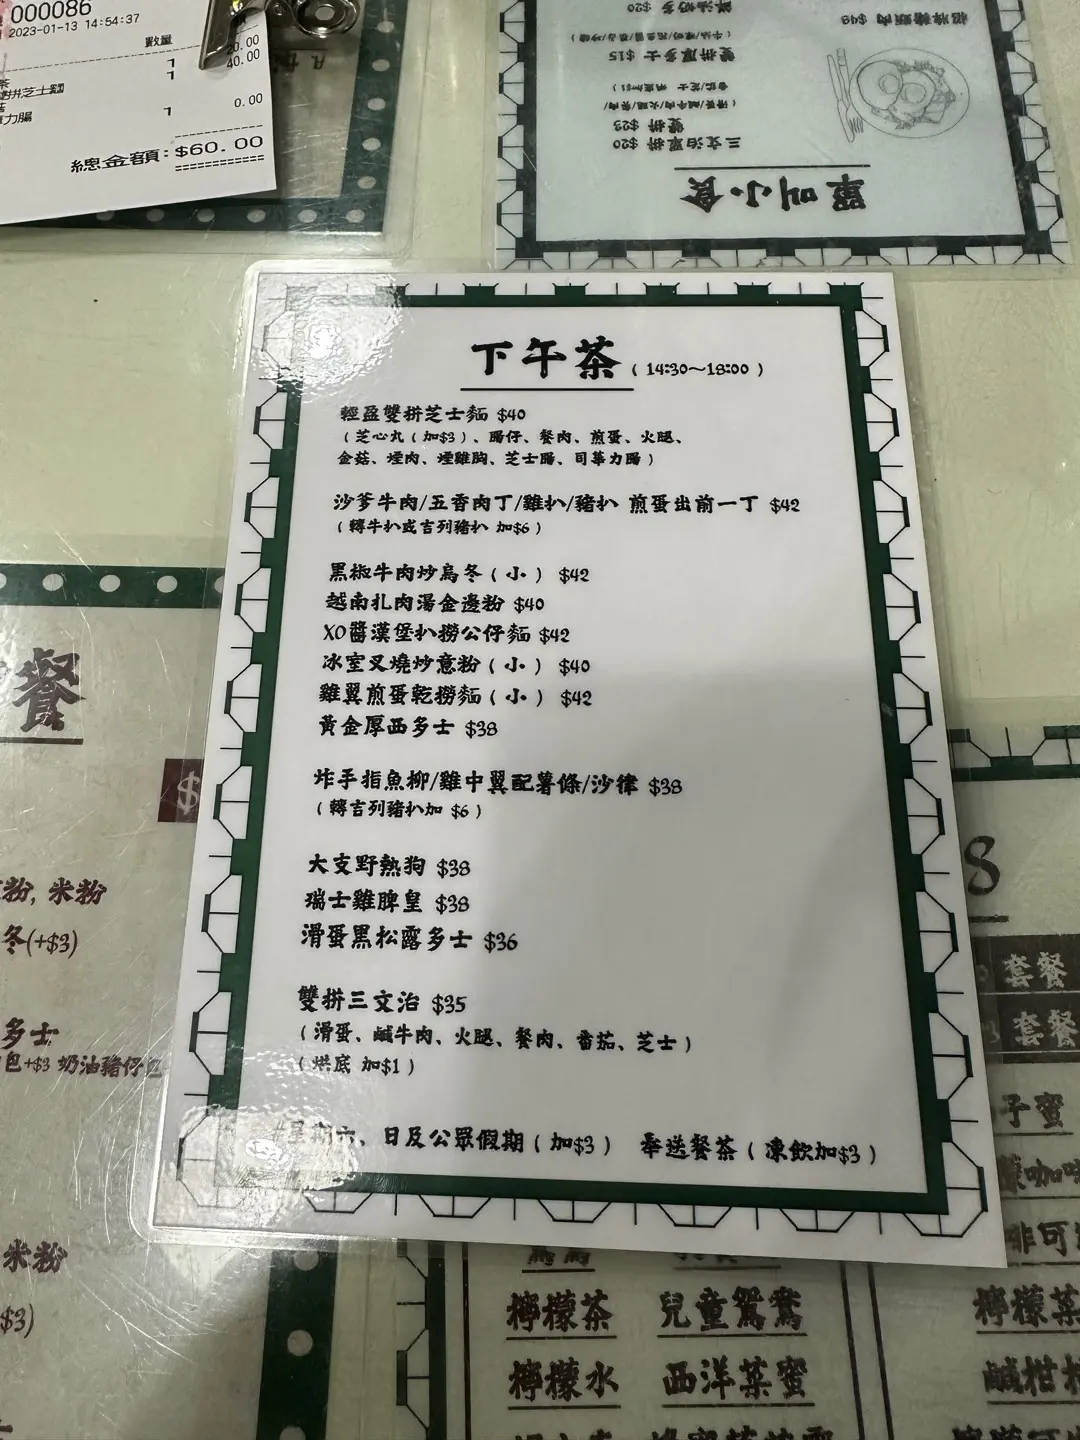 000086
2023-01-13 14:54:37
數量
20.00
1 40.00
茶 1
拼芝士麵
1 0.00
力腸
總金額:$60.00
單叫小食
三文治單拼 $20
雙拼 $23
雙拼厚多士 $15
下午茶 ( 14:30～18:00 )
輕盈雙拼芝士麵 $40
( 芝心丸 ( 加$3 )、腸仔、餐肉、煎蛋、火腿、
金菇、煙肉、煙雞胸、芝士腸、司華力腸 )
沙爹牛肉/五香肉丁/雞扒/豬扒 煎蛋出前一丁 $42
( 轉牛扒或吉列豬扒 加$6 )
黑椒牛肉炒烏冬 ( 小 ) $42
越南扎肉湯金邊粉 $40
XO醬漢堡扒撈公仔麵 $42
冰室叉燒炒意粉 ( 小 ) $40
雞翼煎蛋乾撈麵 ( 小 ) $42
黃金厚西多士 $38
炸手指魚柳/雞中翼配薯條/沙律 $38
( 轉吉列豬扒加 $6 )
大支野熱狗 $38
瑞士雞脾皇 $38
滑蛋黑松露多士 $36
雙拼三文治 $35
( 滑蛋、鹹牛肉、火腿、餐肉、番茄、芝士 )
( 烘底 加$1 )
星期六、日及公眾假期 ( 加$3 ) 奉送餐茶 ( 凍飲加$3 )
餐
$
粉, 米粉
冬(+$3)
多士
包+$3 奶油豬仔包
米粉
$3)
8
套餐
套餐
子蜜
檸檬茶 兒童鴛鴦
檸檬水 西洋菜蜜
檸檬
鹹柑